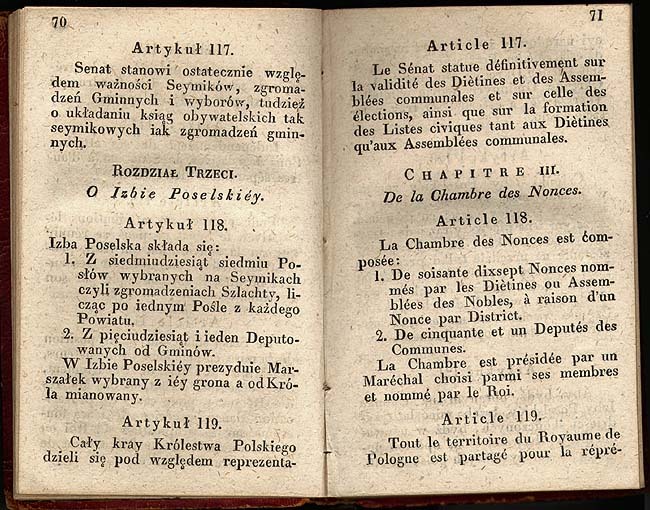 70
Artykuł 117.
Senat stanowi ostatecznie wzglę-
dem ważności Seymików, zgroma-
dzeń Gminnych i wyborów, tudzież
o układaniu ksiąg obywatelskich tak
seymikowych iak zgromadzeń gmin-
nych.
Rozdział Trzeci.
O Izbie Poselskiéy.
Artykuł 118.
Izba Poselska składa się:
1. Z siedmiudziesiąt siedmiu Po-
słów wybranych na Seymikach
czyli zgromadzeniach Szlachty, li-
cząc po iednym Pośle z każdego
Powiatu.
2. Z pięciudziesiąt i ieden Deputo-
wanych od Gminów.
W Izbie Poselskiéy prezyduie Mar-
szałek wybrany z iéy grona a od Kró-
la mianowany.
Artykuł 119.
Cały kray Królestwa Polskiego
dzieli się pod względem reprezenta-
71
Article 117.
Le Sénat statue définitivement sur
la validité des Diètines et des Assem-
blées communales et sur celle des
élections, ainsi que sur la formation
des Listes civiques tant aux Diètines
qu'aux Assemblées communales.
CHAPITRE III.
De la Chambre des Nonces.
Article 118.
La Chambre des Nonces est com-
posée:
1. De soisante dixsept Nonces nom-
més par les Diètines ou Assem-
blées des Nobles, à raison d'un
Nonce par District.
2. De cinquante et un Deputés des
Communes.
La Chambre est présidée par un
Maréchal choisi parmi ses membres
et nommé par le Roi.
Article 119.
Tout le territoire du Royaume de
Pologne est partagé pour la répré-